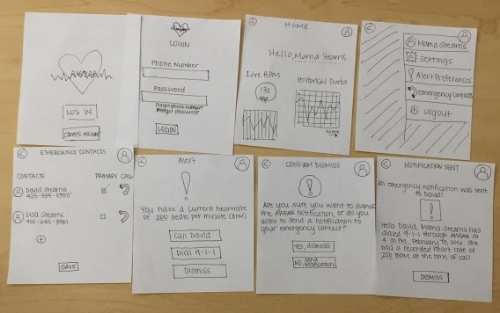 LOG IN
LOGIN
Phone Number
Password
LOGIN
HOME
Hello, Mama Stearns
Live BPM
Historical Data
Mama Stearns
Settings
Alert Preferences
Emergency Contacts
Logout
EMERGENCY CONTACTS
CONTACTS
PRIMARY
CALL
David Stearns
Stearns
SAVE
Alert
You have a current heartrate
of 200 beats per minute (BPM).
Call David
Dial 9-1-1
Dismiss
CONFIRM DISMISS
Are you sure you want to dismiss
the notification, or do you
want to send a notification to
your emergency contact?
Yes, dismiss
No, send
notification
NOTIFICATION SENT
An emergency notification was sent
to David:
Hello David, Mama Stearns has
dialed 9-1-1 through
4:30 PM, February
had a recorded heart rate of
200 BPM at the time of call.
DISMISS